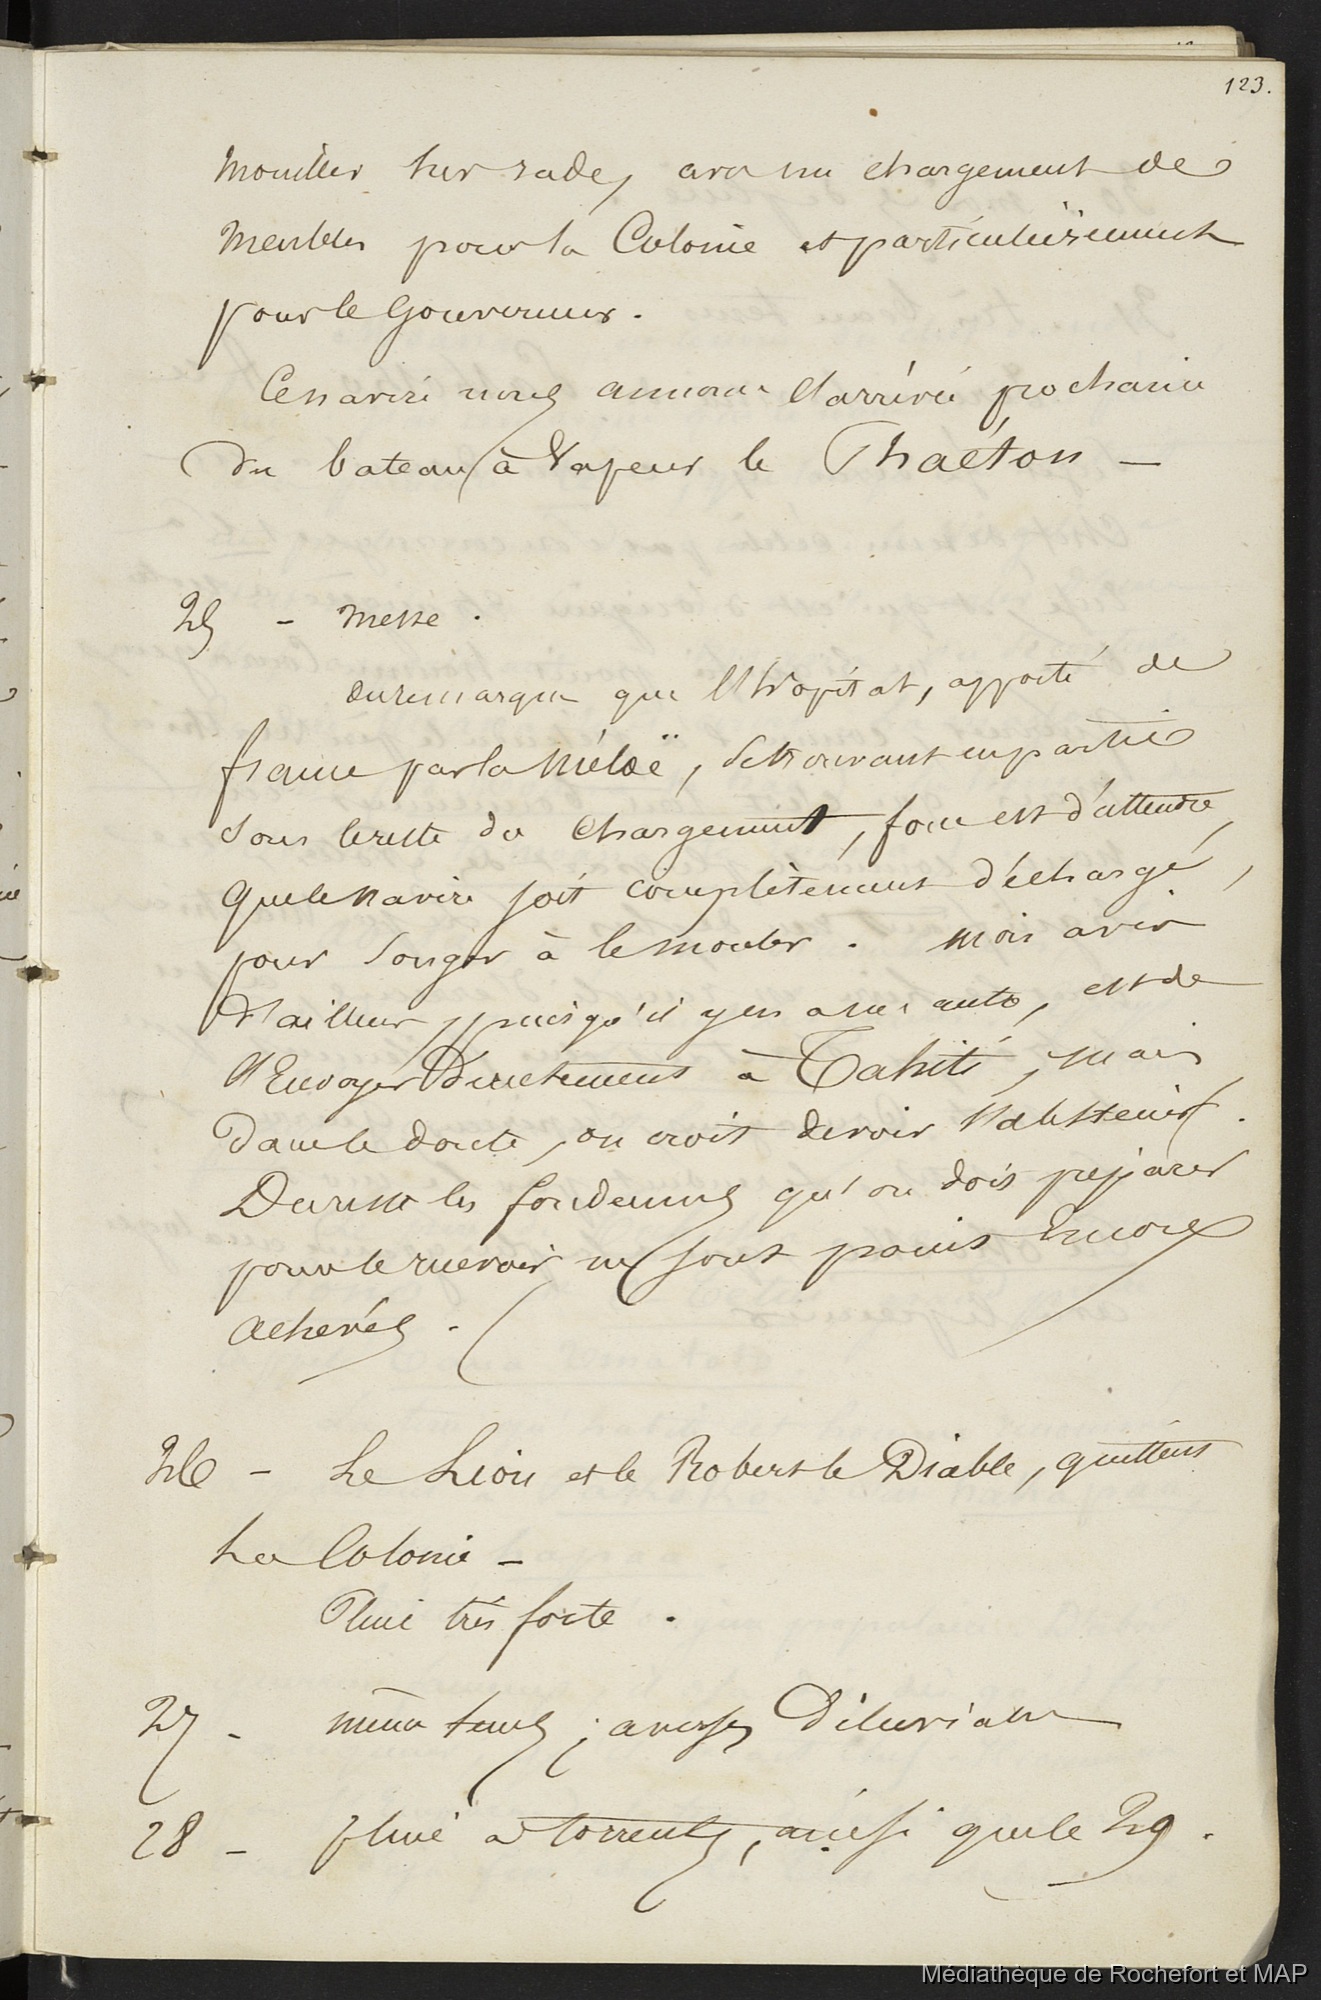 123.
Mouiller sur rade, avec un chargement de
Meubles pour la Colonie et particulièrement
pour le Gouverneur.
Ce navire nous annonce l'arrivée prochaine
du bateau à Vapeur le Phaéton —
25 - Messe.
On remarque que l'hôpital, apporté de
france par la Méloë, se trouvant en partie
sous le reste du chargement, force est d'attendre,
que le navire soit complètement déchargé,
pour songer à le monter. Mon avis
d'ailleurs, puisqu'il y en a un autre, est de
l'Envoyer Directement à Tahiti, mais
dans le doute, on croit devoir s'abstenir.
Du reste les fondemens qu'on dois préparer
pour le recevoir ne sont point Encore
achevés.
26 - Le Lion et le Robert le Diable, quittent
La Colonie —
Pluie très forte.
27 - même temps ; averses Diluviales
28 - pluie à torrents, ainsi que le 29.
Médiathèque de Rochefort et MAP